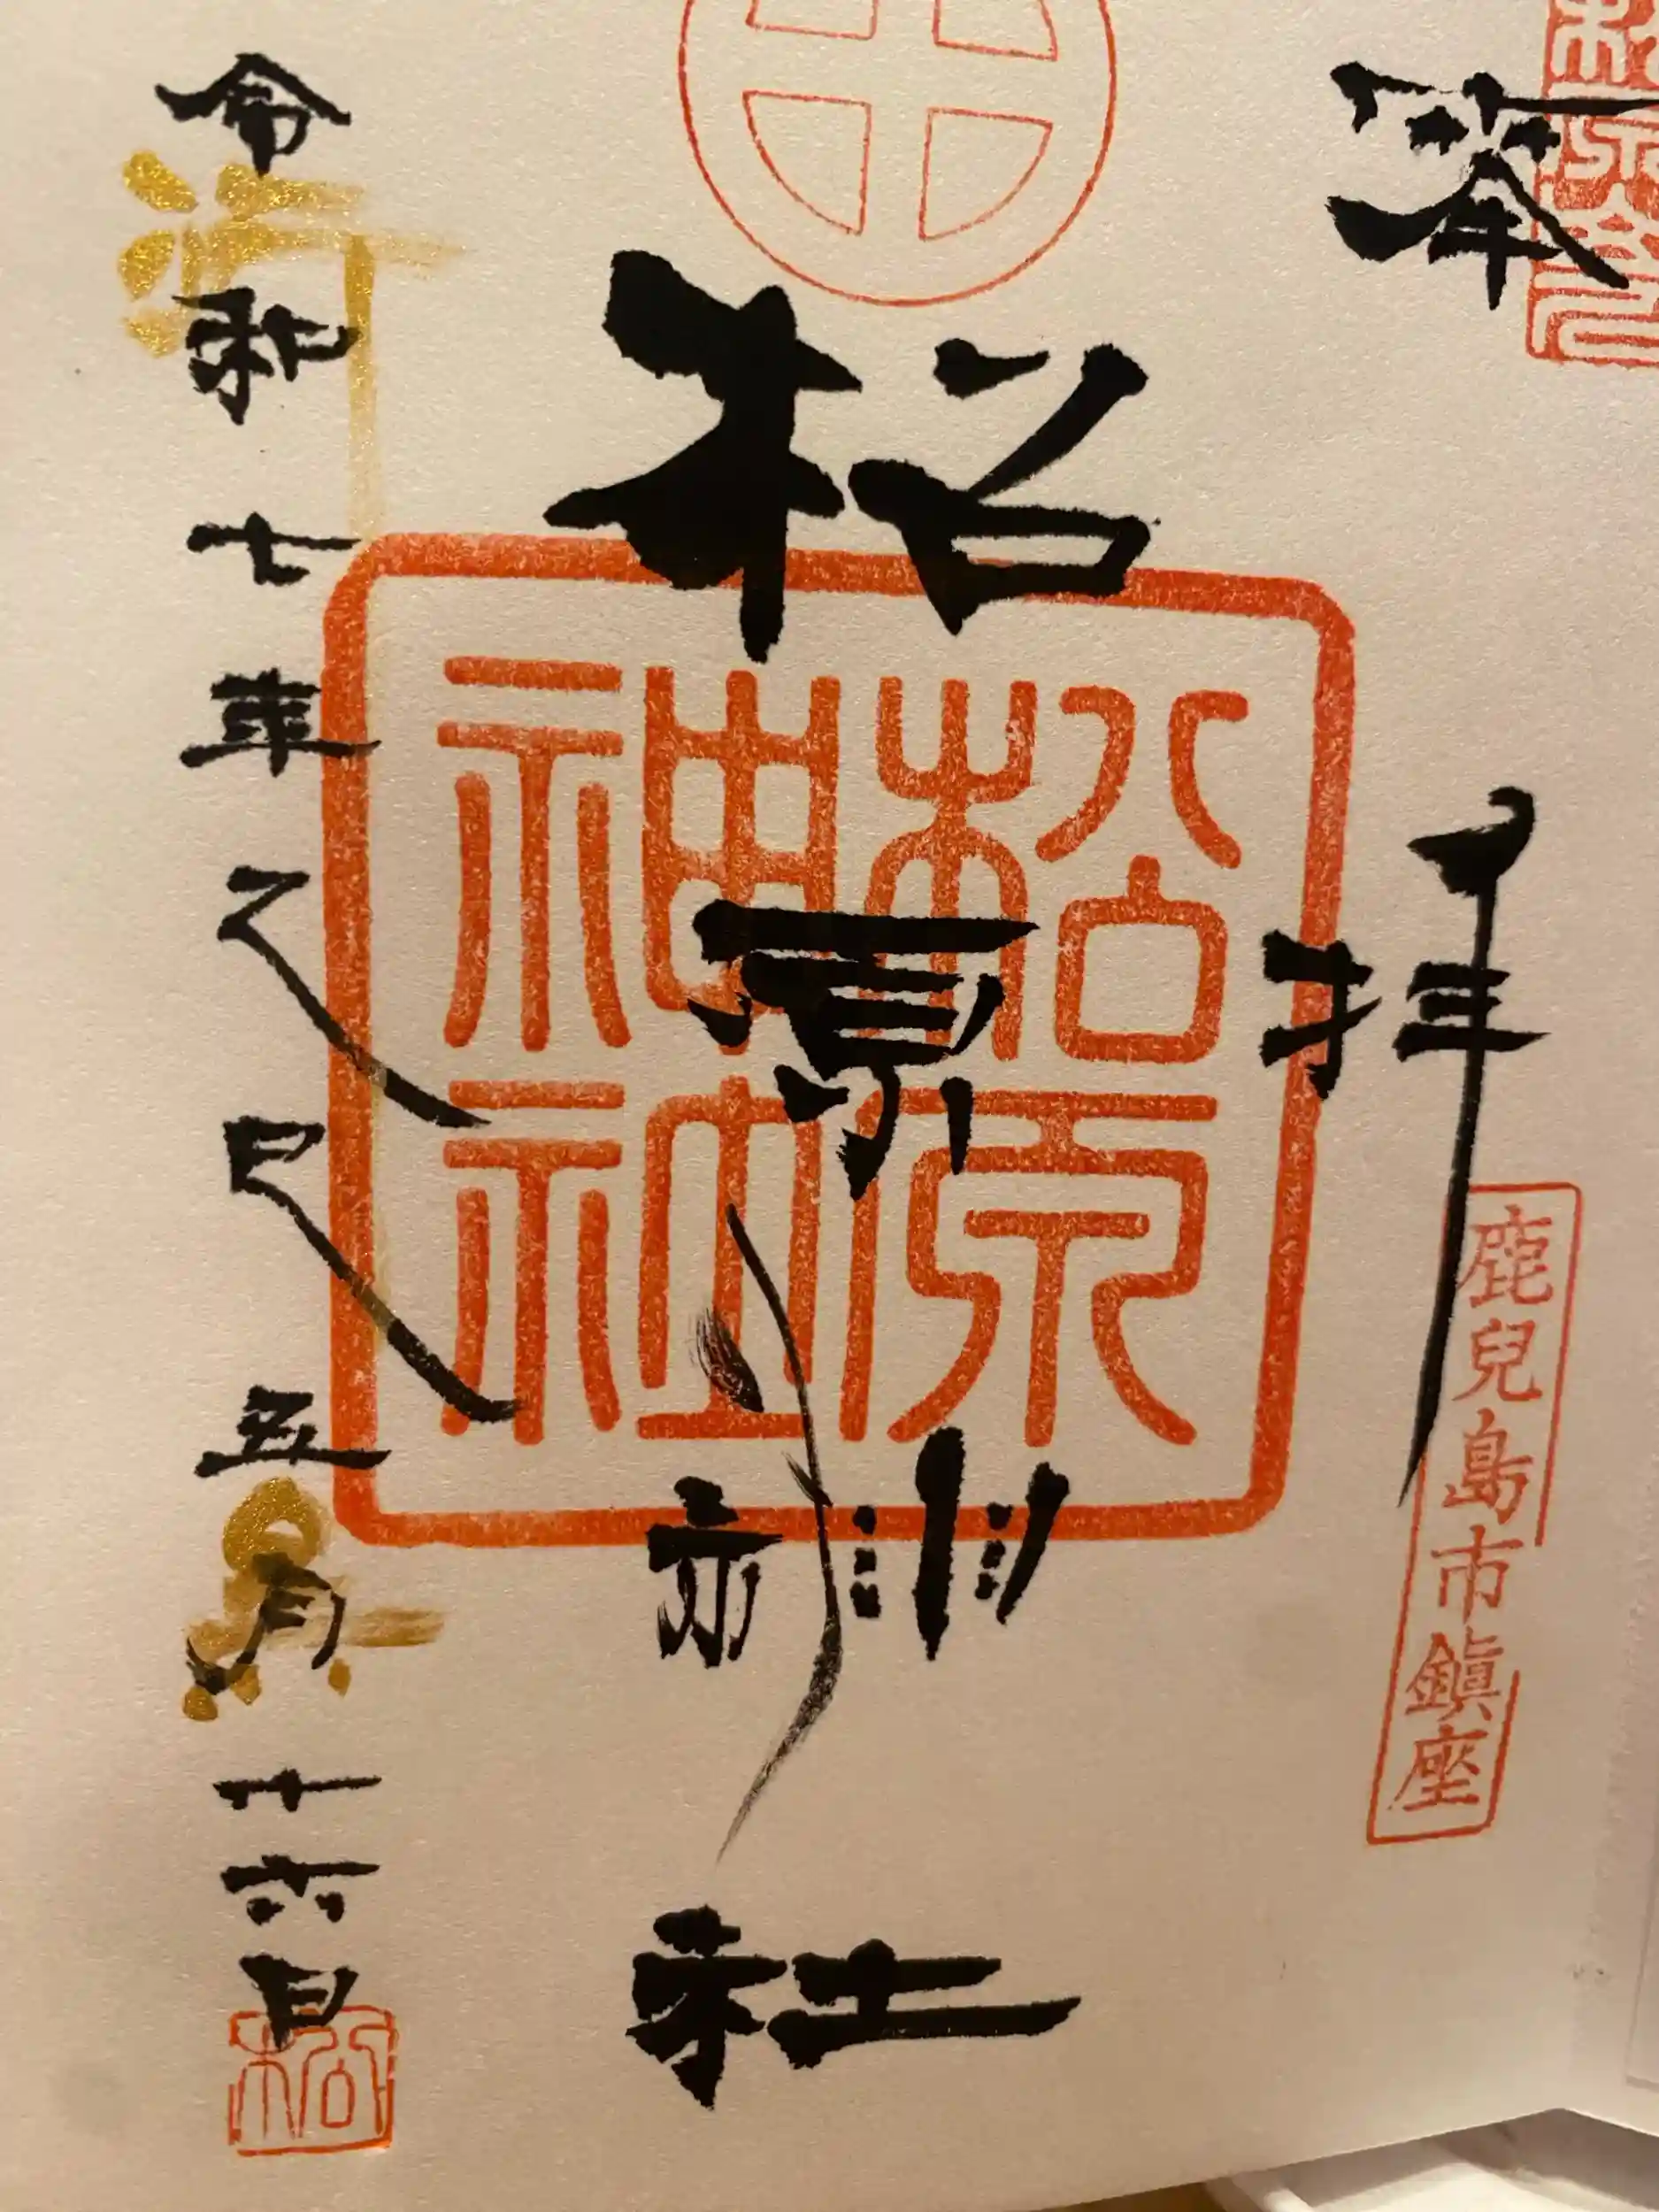 奉拝
鹿兒島市鎮座
松原神社
松原神社
令和七年乙巳五月十六日
松